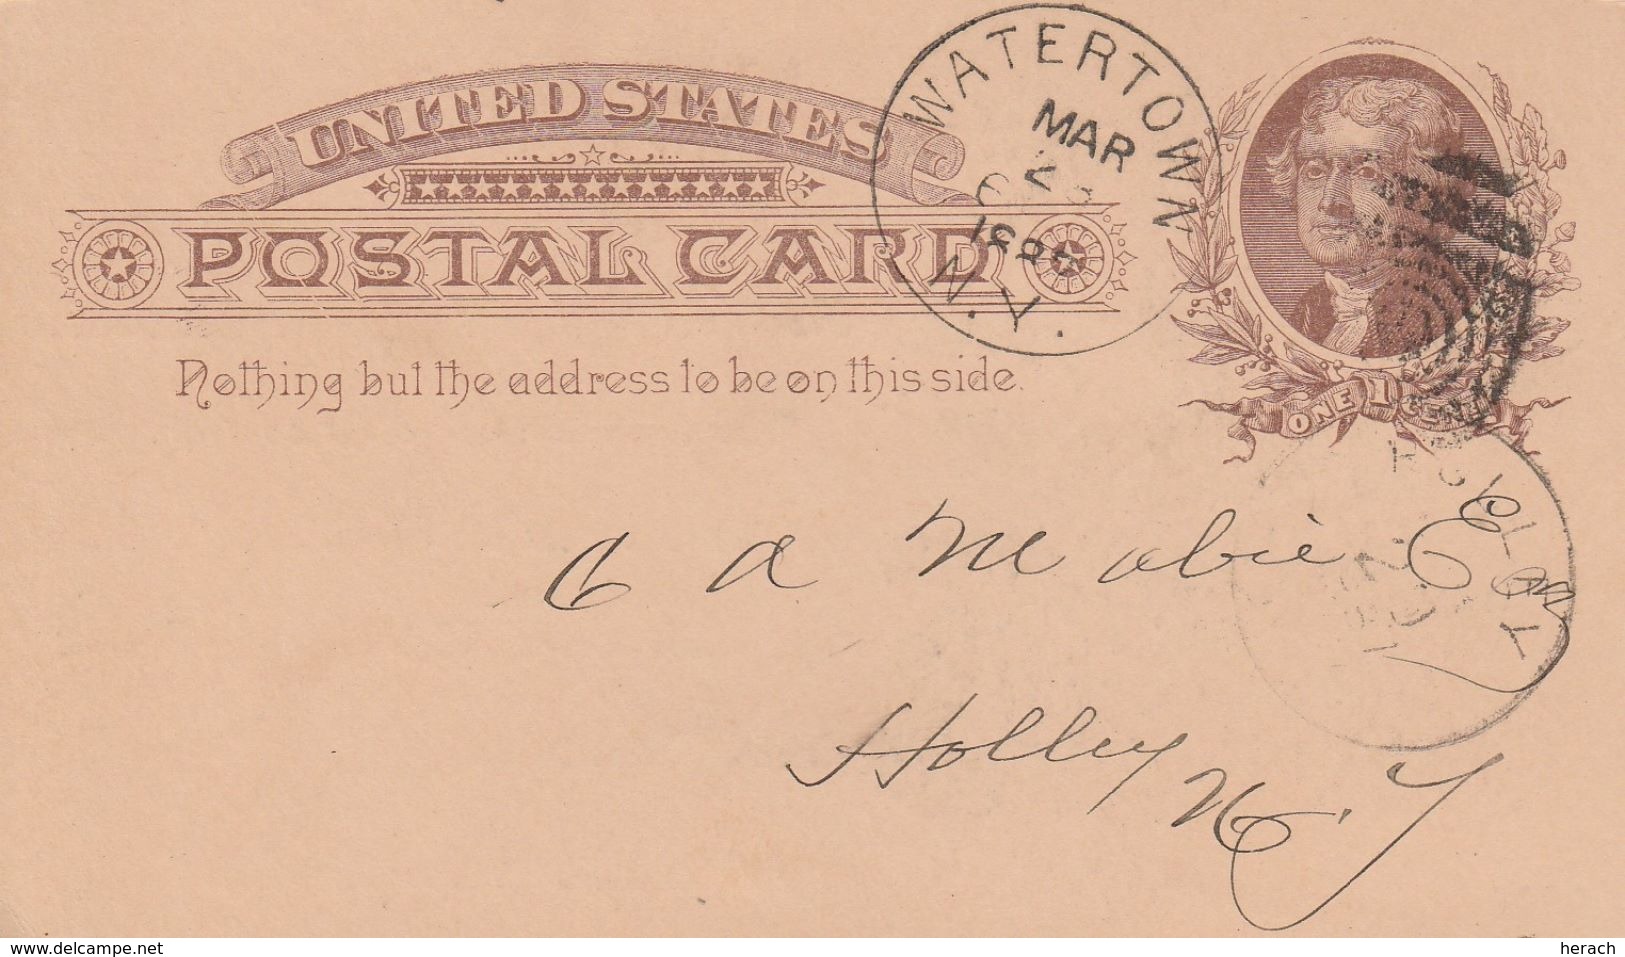 UNITED STATES
POSTAL CARD
Nothing but the address to be on this side.
WATERTOWN
MAR
N.Y.
ONE 1 CENT
HOLLEY
C A Mobie Esq
Holley N.Y
www.delcampe.net
herach